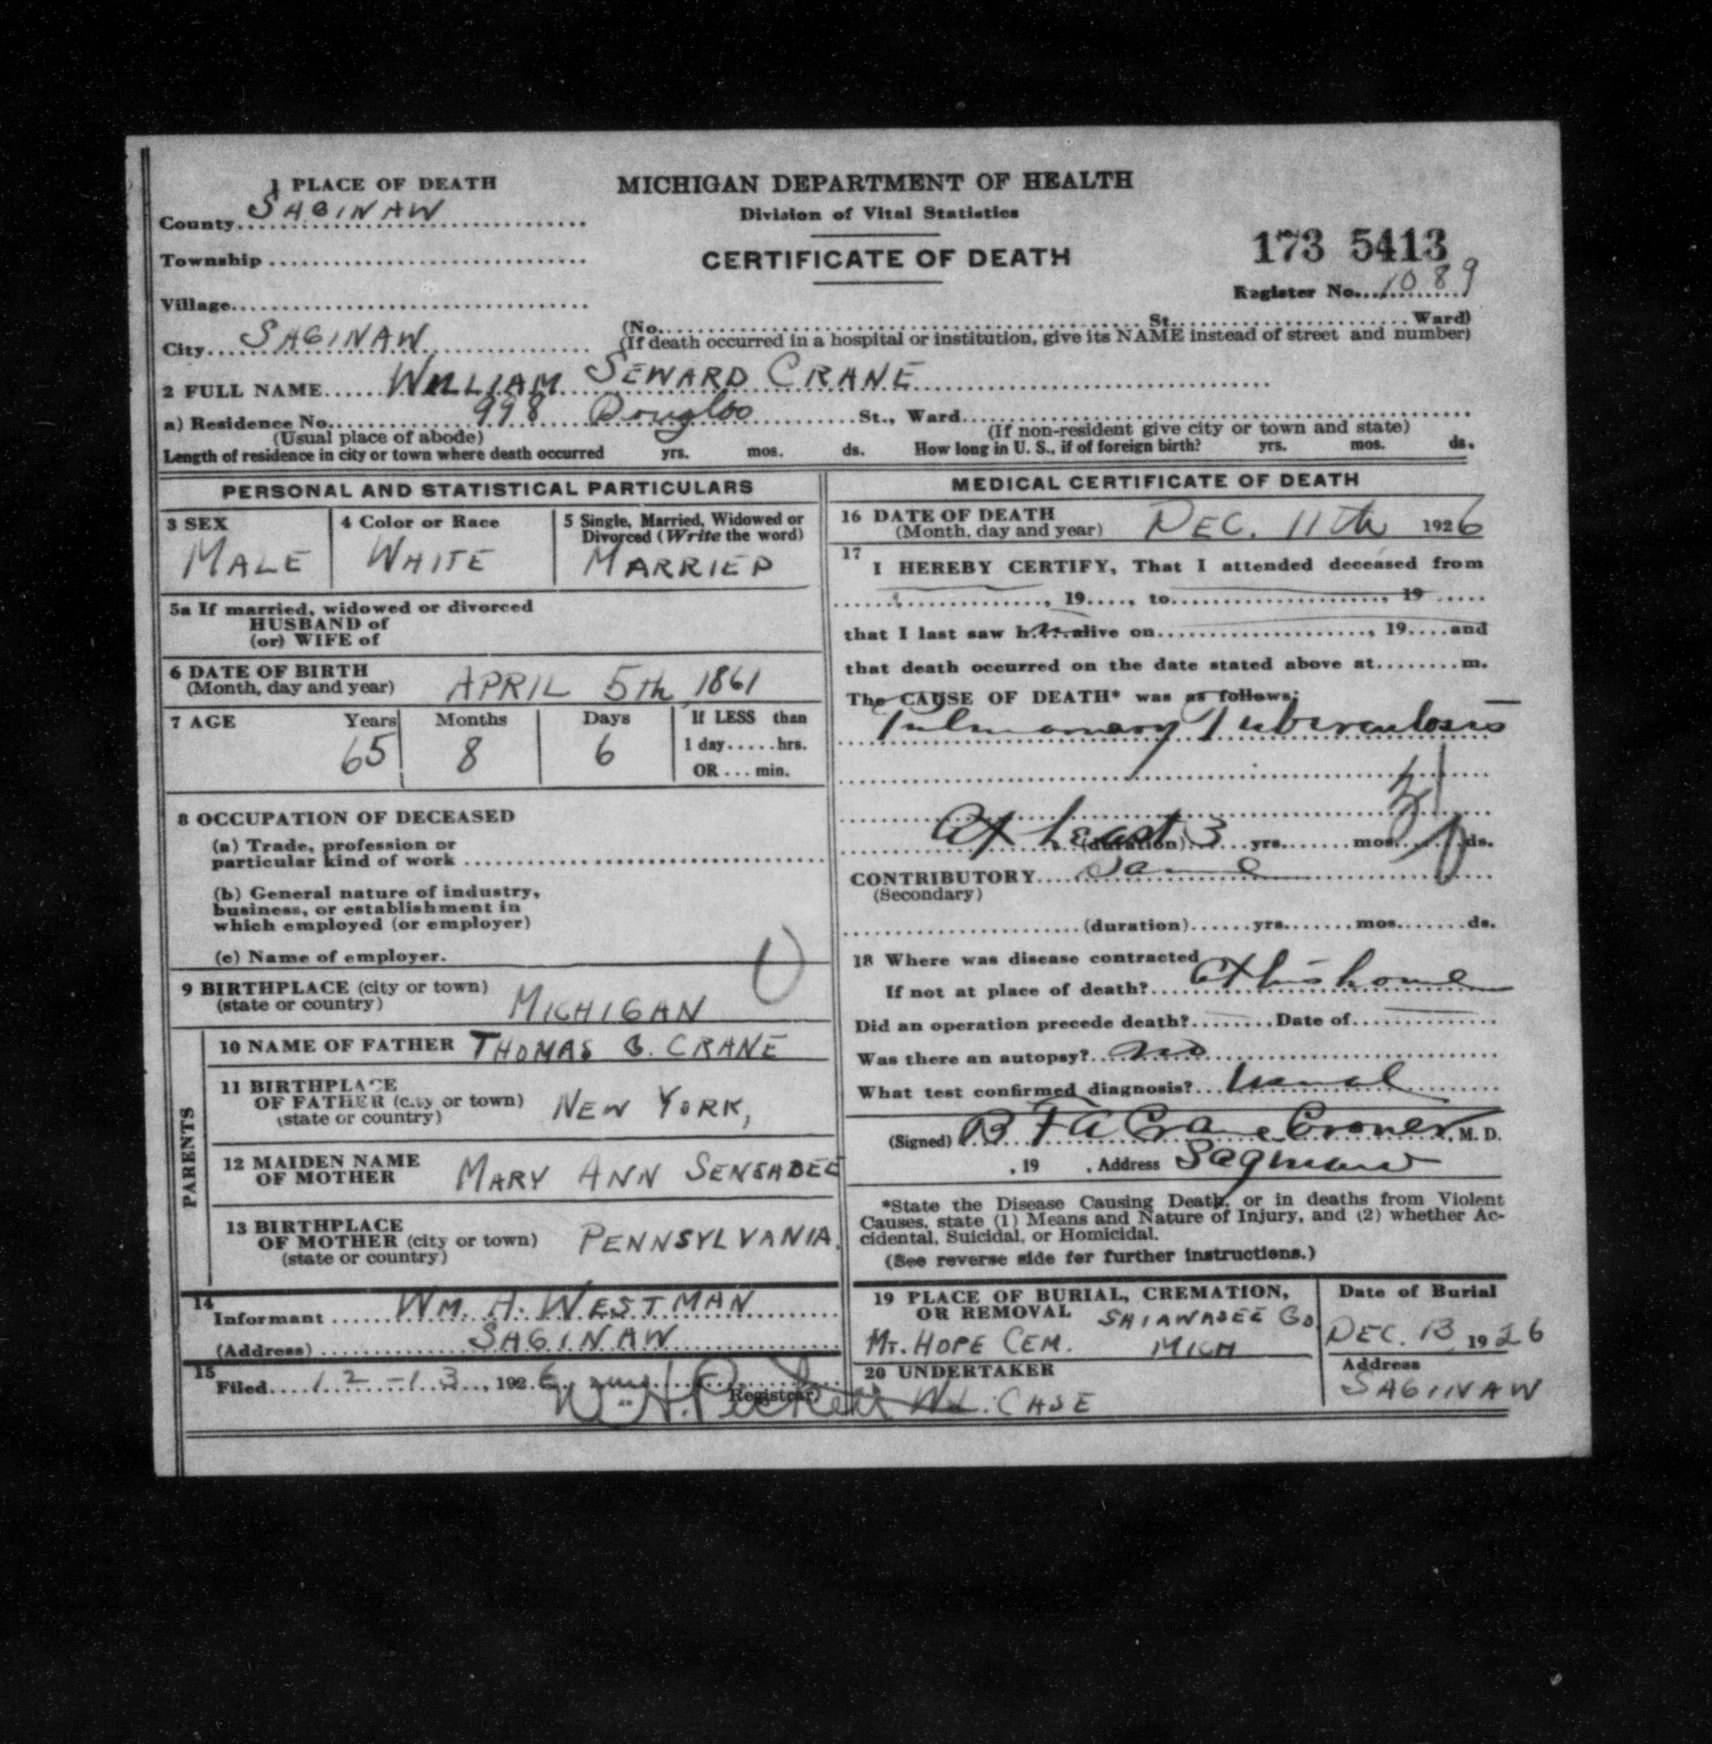 1 PLACE OF DEATH
County SAGINAW
Township
Village
City SAGINAW
MICHIGAN DEPARTMENT OF HEALTH
Division of Vital Statistics
CERTIFICATE OF DEATH
173 5413
Register No. 1089
(No. St. Ward)
(If death occurred in a hospital or institution, give its NAME instead of street and number)
2 FULL NAME WILLIAM SEWARD CRANE
a) Residence No. 998 Douglas St., Ward
(Usual place of abode) (If non-resident give city or town and state)
Length of residence in city or town where death occurred yrs. mos. ds. How long in U. S., if of foreign birth? yrs. mos. ds.
PERSONAL AND STATISTICAL PARTICULARS
3 SEX
MALE
4 Color or Race
WHITE
5 Single, Married, Widowed or
Divorced (Write the word)
MARRIED
5a If married, widowed or divorced
HUSBAND of
(or) WIFE of
6 DATE OF BIRTH
(Month, day and year) APRIL 5th, 1861
7 AGE Years Months Days If LESS than
65 8 6 1 day hrs.
OR min.
8 OCCUPATION OF DECEASED
(a) Trade, profession or
particular kind of work
(b) General nature of industry,
business, or establishment in
which employed (or employer)
(c) Name of employer.
9 BIRTHPLACE (city or town)
(state or country) MICHIGAN
PARENTS
10 NAME OF FATHER THOMAS CRANE
11 BIRTHPLACE
OF FATHER (city or town) NEW YORK,
(state or country)
12 MAIDEN NAME
OF MOTHER MARY ANN
13 BIRTHPLACE
OF MOTHER (city or town) PENNSYLVANIA.
(state or country)
14
Informant WM. H. WESTMAN
(Address) SAGINAW
15
Filed 12-13, 1926 Registrar
MEDICAL CERTIFICATE OF DEATH
16 DATE OF DEATH
(Month, day and year) DEC. 11th 1926
17
I HEREBY CERTIFY, That I attended deceased from
, 19 , to , 19
that I last saw h alive on , 19 and
that death occurred on the date stated above at m.
The CAUSE OF DEATH* was as follows:
Pulmonary Tuberculosis
31
At Least (duration) 3 yrs. mos. ds.
CONTRIBUTORY Same
(Secondary)
(duration) yrs. mos. ds.
18 Where was disease contracted
If not at place of death? At his home
Did an operation precede death? Date of
Was there an autopsy? no
What test confirmed diagnosis? usual
(Signed) B F A Crane Coroner, M. D.
, 19 , Address Saginaw
*State the Disease Causing Death, or in deaths from Violent
Causes, state (1) Means and Nature of Injury, and (2) whether Ac-
cidental, Suicidal, or Homicidal.
(See reverse side for further instructions.)
19 PLACE OF BURIAL, CREMATION,
OR REMOVAL SHIAWASEE CO.
MT. HOPE CEM. MICH
Date of Burial
DEC. 13 1926
20 UNDERTAKER
W.L. CASE
Address
SAGINAW